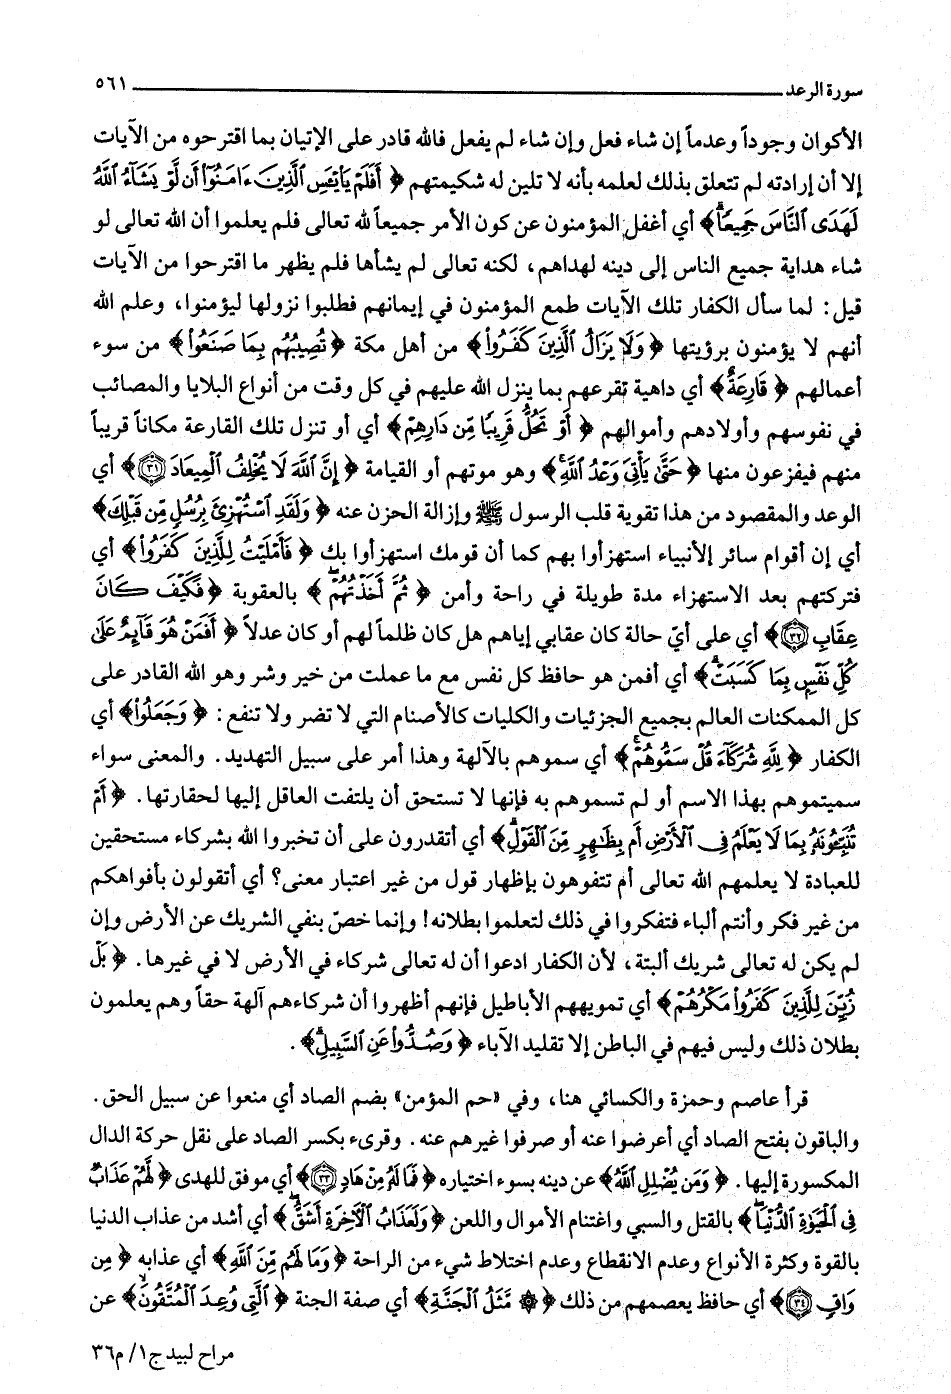 سورة الرعد ٥٦١
الأكوان وجوداً وعدماً إن شاء فعل وإن شاء لم يفعل فالله قادر على الإتيان بما اقترحوه من الآيات
إلا أن إرادته لم تتعلق بذلك لعلمه بأنه لا تلين له شكيمتهم ﴿ أَفَلَمْ يَاْيْـَٔسِ ٱلَّذِينَ ءَامَنُوٓا۟ أَن لَّوْ يَشَآءُ ٱللَّهُ
لَهَدَى ٱلنَّاسَ جَمِيعًا ۗ﴾ أي أغفل المؤمنون عن كون الأمر جميعاً لله تعالى فلم يعلموا أن الله تعالى لو
شاء هداية جميع الناس إلى دينه لهداهم، لكنه تعالى لم يشأها فلم يظهر ما اقترحوا من الآيات
قيل: لما سأل الكفار تلك الآيات طمع المؤمنون في إيمانهم فطلبوا نزولها ليؤمنوا، وعلم الله
أنهم لا يؤمنون برؤيتها ﴿ وَلَا يَزَالُ ٱلَّذِينَ كَفَرُوا۟﴾ من أهل مكة ﴿ تُصِيبُهُم بِمَا صَنَعُوا۟﴾ من سوء
أعمالهم ﴿ قَارِعَةٌ﴾ أي داهية تقرعهم بما ينزل الله عليهم في كل وقت من أنواع البلايا والمصائب
في نفوسهم وأولادهم وأموالهم ﴿ أَوْ تَحُلُّ قَرِيبًا مِّن دَارِهِمْ﴾ أي أو تنزل تلك القارعة مكاناً قريباً
منهم فيفزعون منها ﴿ حَتَّىٰ يَأْتِىَ وَعْدُ ٱللَّهِ ۚ﴾ وهو موتهم أو القيامة ﴿ إِنَّ ٱللَّهَ لَا يُخْلِفُ ٱلْمِيعَادَ ٣١﴾ أي
الوعد والمقصود من هذا تقوية قلب الرسول ﷺ وإزالة الحزن عنه ﴿ وَلَقَدِ ٱسْتُهْزِئَ بِرُسُلٍ مِّن قَبْلِكَ﴾
أي إن أقوام سائر الأنبياء استهزأوا بهم كما أن قومك استهزأوا بك ﴿ فَأَمْلَيْتُ لِلَّذِينَ كَفَرُوا۟﴾ أي
فتركتهم بعد الاستهزاء مدة طويلة في راحة وأمن ﴿ ثُمَّ أَخَذْتُهُمْ ۖ﴾ بالعقوبة ﴿ فَكَيْفَ كَانَ
عِقَابِ ٣٢﴾ أي على أيّ حالة كان عقابي إياهم هل كان ظلماً لهم أو كان عدلاً ﴿ أَفَمَنْ هُوَ قَآئِمٌ عَلَىٰ
كُلِّ نَفْسٍۭ بِمَا كَسَبَتْ ۗ﴾ أي أفمن هو حافظ كل نفس مع ما عملت من خير وشر وهو الله القادر على
كل الممكنات العالم بجميع الجزئيات والكليات كالأصنام التي لا تضر ولا تنفع: ﴿ وَجَعَلُوا۟﴾ أي
الكفار ﴿ لِلَّهِ شُرَكَآءَ قُلْ سَمُّوهُمْ ۚ﴾ أي سموهم بالآلهة وهذا أمر على سبيل التهديد. والمعنى سواء
سميتموهم بهذا الاسم أو لم تسموهم به فإنها لا تستحق أن يلتفت العاقل إليها لحقارتها. ﴿ أَمْ
تُنَبِّـُٔونَهُۥ بِمَا لَا يَعْلَمُ فِى ٱلْأَرْضِ أَم بِظَـٰهِرٍ مِّنَ ٱلْقَوْلِ ۗ﴾ أي أتقدرون على أن تخبروا الله بشركاء مستحقين
للعبادة لا يعلمهم الله تعالى أم تتفوهون بإظهار قول من غير اعتبار معنى؟ أي أتقولون بأفواهكم
من غير فكر وأنتم ألباء فتفكروا في ذلك لتعلموا بطلانه! وإنما خصّ بنفي الشريك عن الأرض وإن
لم يكن له تعالى شريك ألبتة، لأن الكفار ادعوا أن له تعالى شركاء في الأرض لا في غيرها. ﴿ بَلْ
زُيِّنَ لِلَّذِينَ كَفَرُوا۟ مَكْرُهُمْ﴾ أي تمويههم الأباطيل فإنهم أظهروا أن شركاءهم آلهة حقاً وهم يعلمون
بطلان ذلك وليس فيهم في الباطن إلا تقليد الآباء ﴿ وَصُدُّوا۟ عَنِ ٱلسَّبِيلِ ۗ﴾.
قرأ عاصم وحمزة والكسائي هنا، وفي «حم المؤمن» بضم الصاد أي منعوا عن سبيل الحق.
والباقون بفتح الصاد أي أعرضوا عنه أو صرفوا غيرهم عنه. وقرىء بكسر الصاد على نقل حركة الدال
المكسورة إليها. ﴿ وَمَن يُضْلِلِ ٱللَّهُ﴾ عن دينه بسوء اختياره ﴿ فَمَا لَهُۥ مِنْ هَادٍ ٣٣﴾ أي موفق للهدى ﴿ لَّهُمْ عَذَابٌ
فِى ٱلْحَيَوٰةِ ٱلدُّنْيَا ۖ﴾ بالقتل والسبي واغتنام الأموال واللعن ﴿ وَلَعَذَابُ ٱلْـَٔاخِرَةِ أَشَقُّ ۖ﴾ أي أشد من عذاب الدنيا
بالقوة وكثرة الأنواع وعدم الانقطاع وعدم اختلاط شيء من الراحة ﴿ وَمَا لَهُم مِّنَ ٱللَّهِ﴾ أي عذابه ﴿ مِن
وَاقٍ ٣٤﴾ أي حافظ يعصمهم من ذلك ﴿ ۞ مَّثَلُ ٱلْجَنَّةِ﴾ أي صفة الجنة ﴿ ٱلَّتِى وُعِدَ ٱلْمُتَّقُونَ ۖ﴾ عن
مراح لبيد ج١/ م٣٦